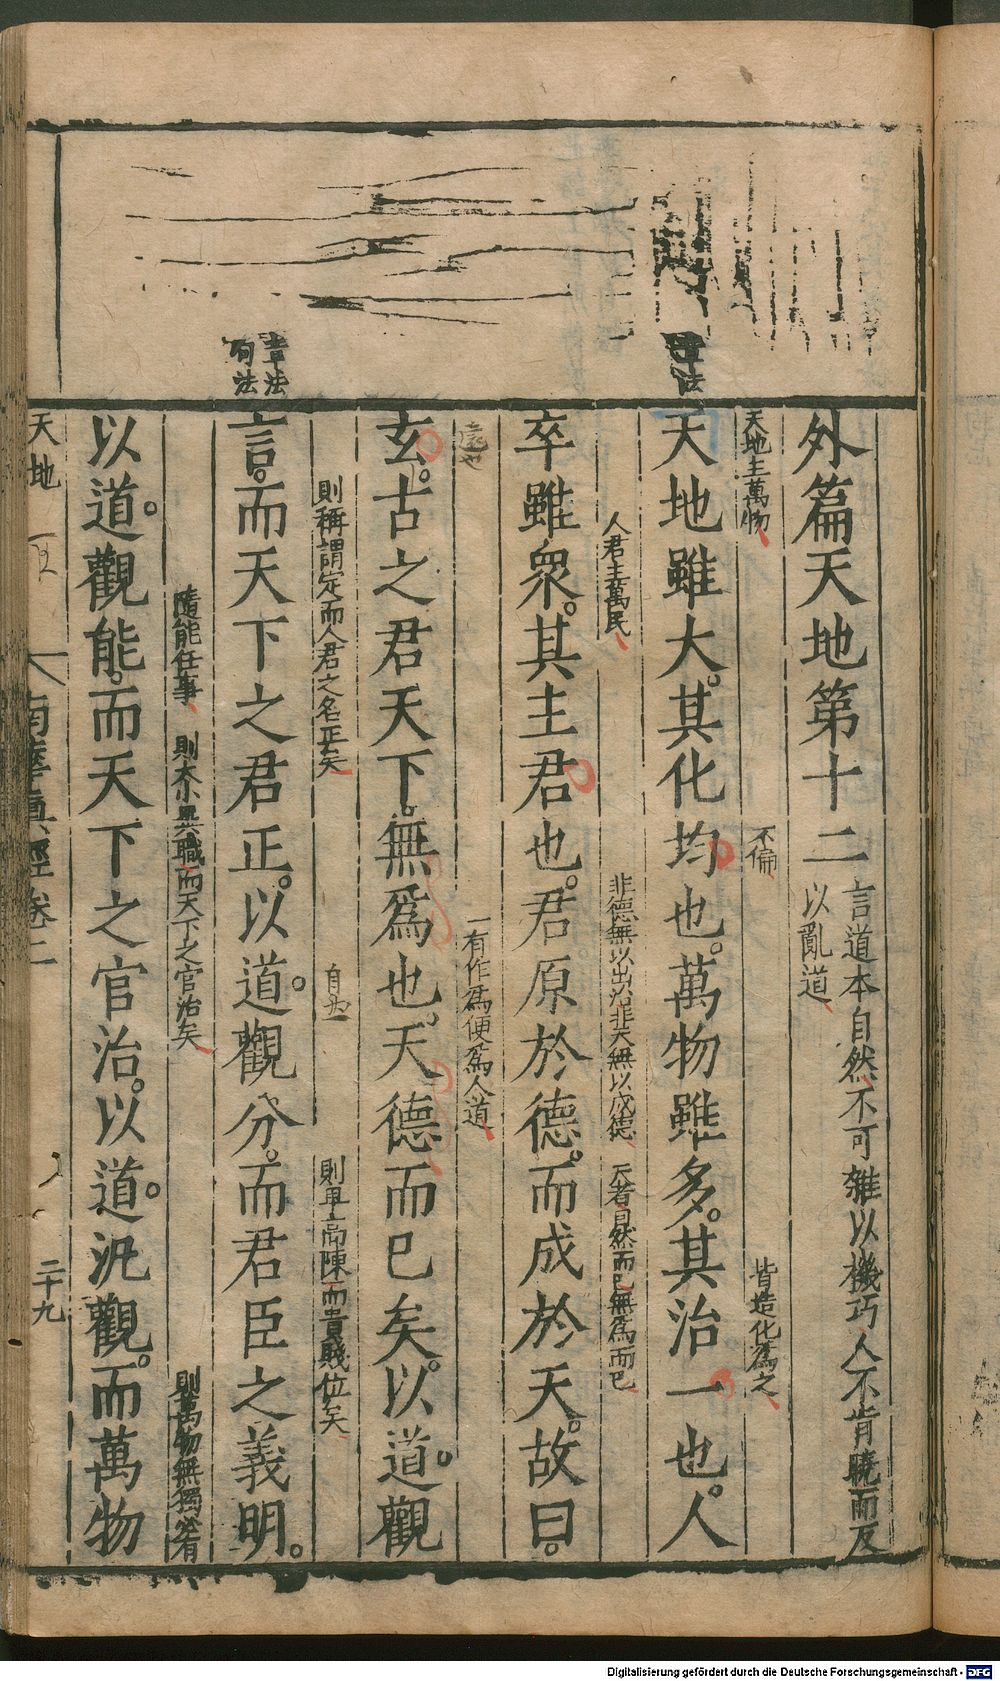 章法
外篇天地第十二
言道本自然不可雜以機巧人不肯曉而反
以亂道
天地主萬物
不偏
皆造化爲之
天地雖大。其化均也。萬物雖多。其治一也。人
人君主萬民
非德無以出治非天無以成德
天者自然而已無爲而已
卒雖衆。其主君也。君原於德。而成於天。故曰。
遠也
一有作爲便爲人道
玄。古之君天下。無爲也。天德而已矣。以道觀
則稱謂定而人君之名正矣
則卑高陳而貴賤位矣
章法
句法
言。而天下之君正。以道觀分。而君臣之義明。
隨能任事
則大小異職而天下之官治矣
則萬物無獨必有
以道觀能。而天下之官治。以道汎觀。而萬物
天地
南華眞經卷二
二十九
Digitalisierung gefördert durch die Deutsche Forschungsgemeinschaft - DFG